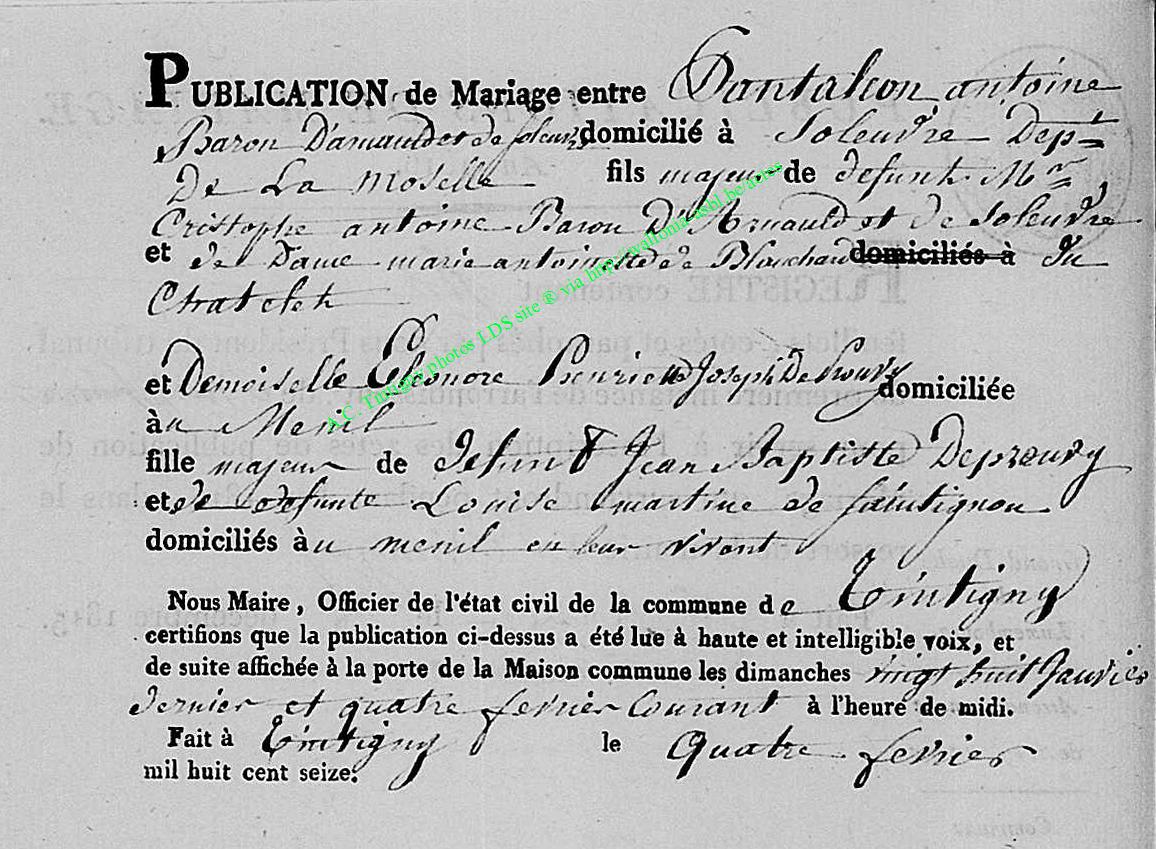 PUBLICATION de Mariage entre Pantaleon antoine
Baron D'arnauld et de soleuvre domicilié à Soleuvre Dept
De La Moselle fils majeur de defunt Mr
Cristophe antoine Baron D'Arnauld et de Soleuvre
et de Dame marie antoinette de Blanchard domiciliés à Du
Chatelet
et Demoiselle Eleonore Henriette Joseph De domiciliée
àu Menil
fille majeur de defunt Jean Baptiste Deprouvy
et de defunte Louise martine de faintignon
domiciliés àu menil en leur vivant
Nous Maire, Officier de l'état civil de la commune de Tintigny
certifions que la publication ci-dessus a été lue à haute et intelligible voix, et
de suite affichée à la porte de la Maison commune les dimanches vingt huit Janvier
dernier et quatre fevrier Courant à l'heure de midi.
Fait à Tintigny le quatre fevrier
mil huit cent seize.
A.C. Tintigny photos LDS site ® via http://wallonia-asbl.be/actes